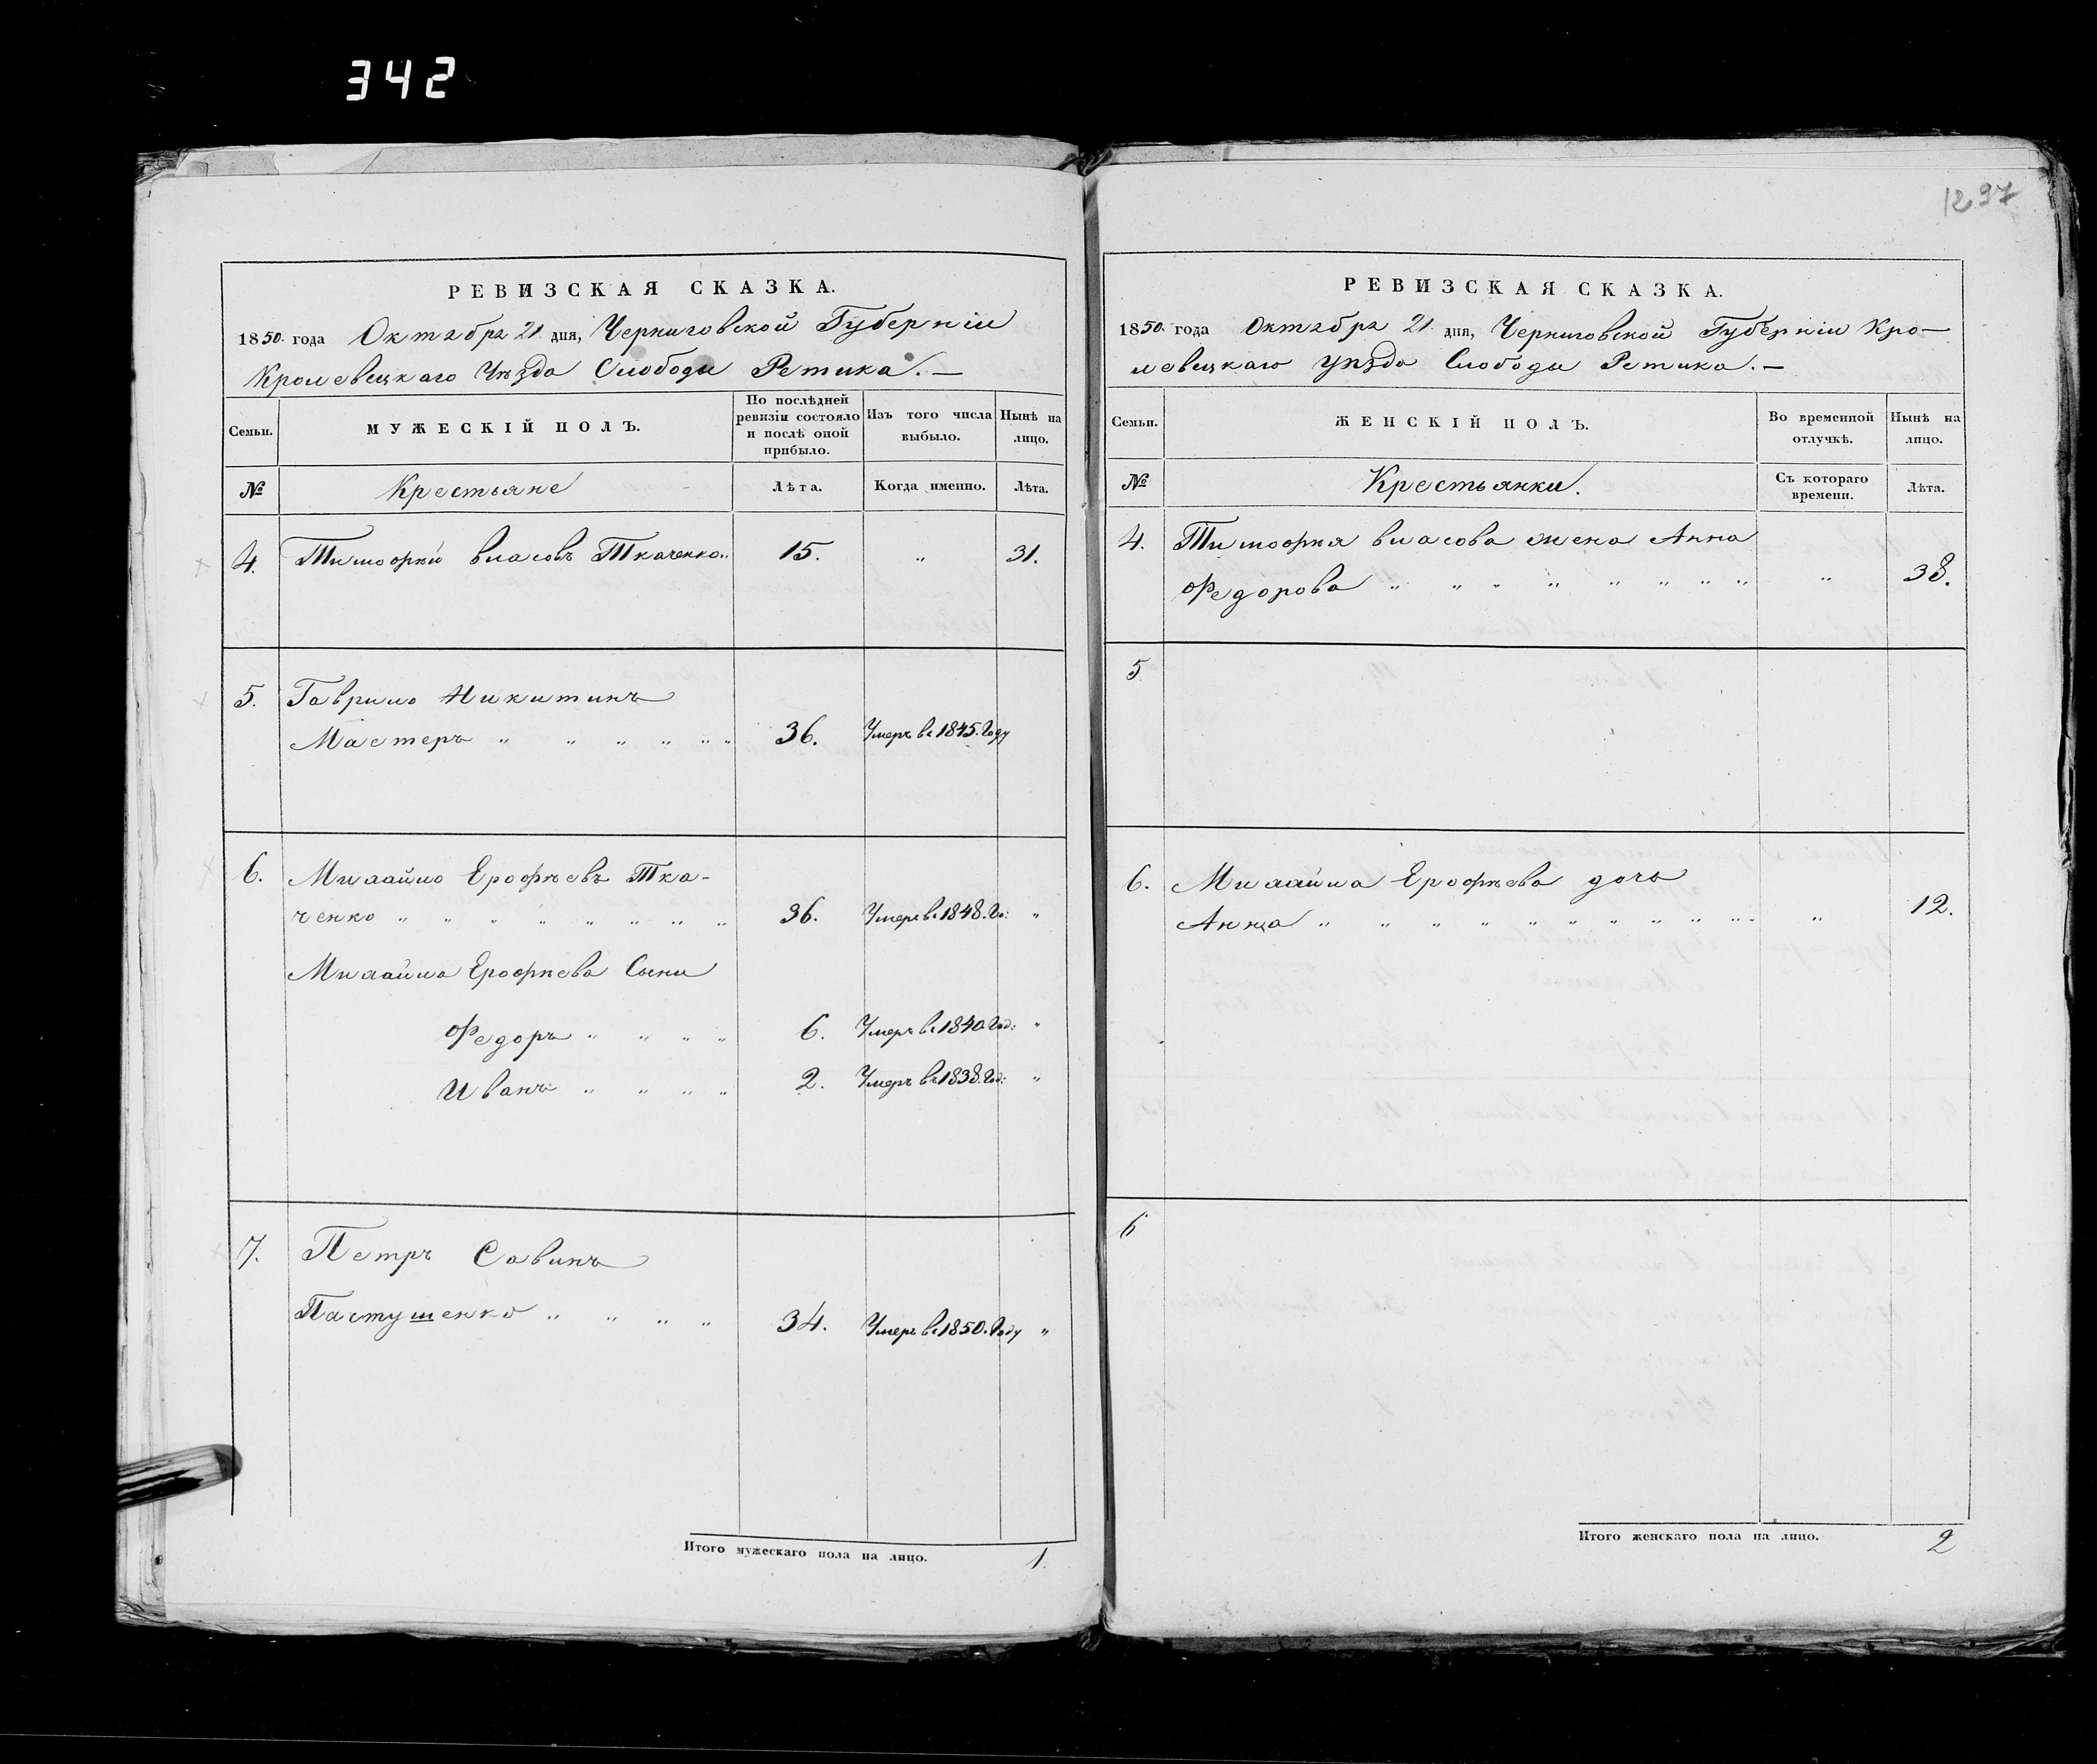 342
1297
РЕВИЗСКАЯ СКАЗКА.
1850. года Октября 21 дня, Черниговской Губерніи
Кролевецкаго Уѣзда Слободы Ретика. —
Семьи.
МУЖЕСКІЙ ПОЛЪ.
По послѣдней ревизіи состояло и послѣ оной прибыло.
Изъ того числа выбыло.
Нынѣ на лицо.
№
Крестьяне
Лѣта.
Когда именно.
Лѣта.
4. Тимофѣй Власовъ Ткаченко.. 15. „ 31.
5. Гаврило Никитинъ
Мастеръ „ „ „ „ „ „ 36. Умеръ въ 1845. Году
6. Михайло Ерофѣевъ Тка-
ченко „ „ „ „ „ „ „ „ 36. Умеръ въ 1848. Го: „
Михайла Ерофѣева Сыни
Федоръ „ „ „ „ 6. Умеръ въ 1840. Год: „
Иванъ „ „ „ „ 2. Умеръ въ 1838. Год: „
7. Петръ Савинъ
Пастушенко „ „ „ „ 34. Умеръ въ 1850. Году „
Итого мужескаго пола на лицо. 1.
РЕВИЗСКАЯ СКАЗКА.
1850. года Октября 21 дня, Черниговской Губерніи Кро—
левецкаго уѣзда Слободы Ретика. —
Семьи.
ЖЕНСКІЙ ПОЛЪ.
Во временной отлучкѣ.
Нынѣ на лицо.
№
Крестьянки.
Съ котораго времени.
Лѣта.
4. Тимофѣя Власова жена Анна
Федорова „ „ „ „ „ „ „ „ „ 38.
5
6. Михайла Ерофѣева дочь
Анна „ „ „ „ „ „ „ „ „ „ „ „ 12.
6
Итого женскаго пола на лицо. 2